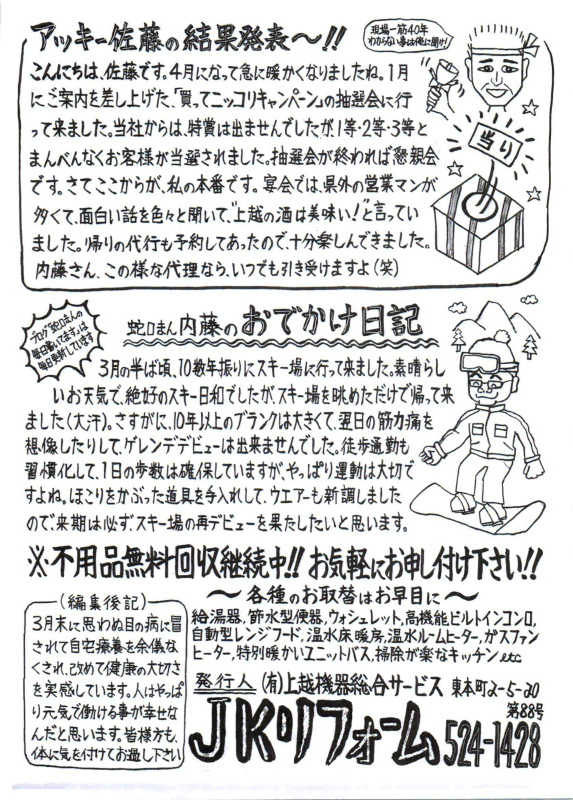 アッキー佐藤の結果発表〜!!
現場一筋40年
わからない事は俺に聞け!
こんにちは、佐藤です。4月になって急に暖かくなりましたね。1月
にご案内を差し上げた、「買ってニッコリキャンペーン」の抽選会に行
って来ました。当社からは、特賞は出ませんでしたが、1等・2等・3等と
まんべんなくお客様が当選されました。抽選会が終われば懇親会
です。さてここからが、私の本番です。宴会では、県外の営業マンが
多くて、面白い話を色々と聞いて、"上越の酒は美味い!"と言ってい
ました。帰りの代行も予約してあったので、十分楽しんできました。
内藤さん、この様な代理なら、いつでも引き受けますよ(笑)
当り
ブログ「蛇口まんの
毎日書いてます」は
毎日更新しています
蛇口まん内藤のおでかけ日記
3月の半ば頃、10数年振りにスキー場に行って来ました。素晴らし
いお天気で、絶好のスキー日和でしたが、スキー場を眺めただけで帰って来
ました(大汗)。さすがに、10年以上のブランクは大きくて、翌日の筋力痛を
想像したりして、ゲレンデデビューは出来ませんでした。徒歩通勤も
習慣化して、1日の歩数は確保していますが、やっぱり運動は大切で
すよね。ほこりをかぶった道具を手入れして、ウエアーも新調しました
ので、来期は必ず、スキー場の再デビューを果たしたいと思います。
※不用品無料回収継続中!!お気軽にお申し付け下さい!!
〜各種のお取替はお早目に〜
給湯器,節水型便器,ウォシュレット,高機能ビルトインコンロ,
自動型レンジフード,温水床暖房,温水ルームヒーター,ガスファン
ヒーター,特別暖かいユニットバス,掃除が楽なキッチンetc
(編集後記)
3月末に思わぬ目の病に冒
されて自宅療養を余儀な
くされ、改めて健康の大切さ
を実感しています。人はやっぱ
り元気で働ける事が幸せな
んだと思います。皆様方も、
体に気を付けてお過し下さい
発行人 (有)上越機器総合サービス 東本町2-5-20
第88号
JKリフォーム 524-1428